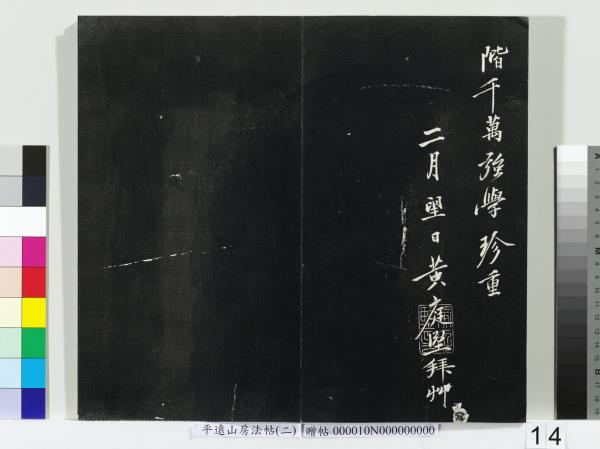 階千萬強學珍重
二月望日黃庭堅拜艸
平遠山房法帖(二)
贈帖 000010N000000000
14